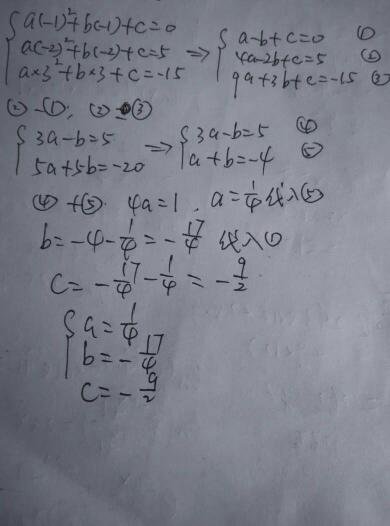 { a(-1)²+b(-1)+c=0
a(-2)²+b(-2)+c=5
a×3²+b×3+c=-15
⇒ { a-b+c=0 ①
4a-2b+c=5 ②
9a+3b+c=-15 ③
②-①, ②-③
{ 3a-b=5
5a+5b=-20
⇒ { 3a-b=5 ④
a+b=-4 ⑤
④+⑤ 4a=1, a=1/4 代入⑤
b=-4-1/4=-17/4 代入①
c=-17/4-1/4=-9/2
{ a=1/4
b=-17/4
c=-9/2